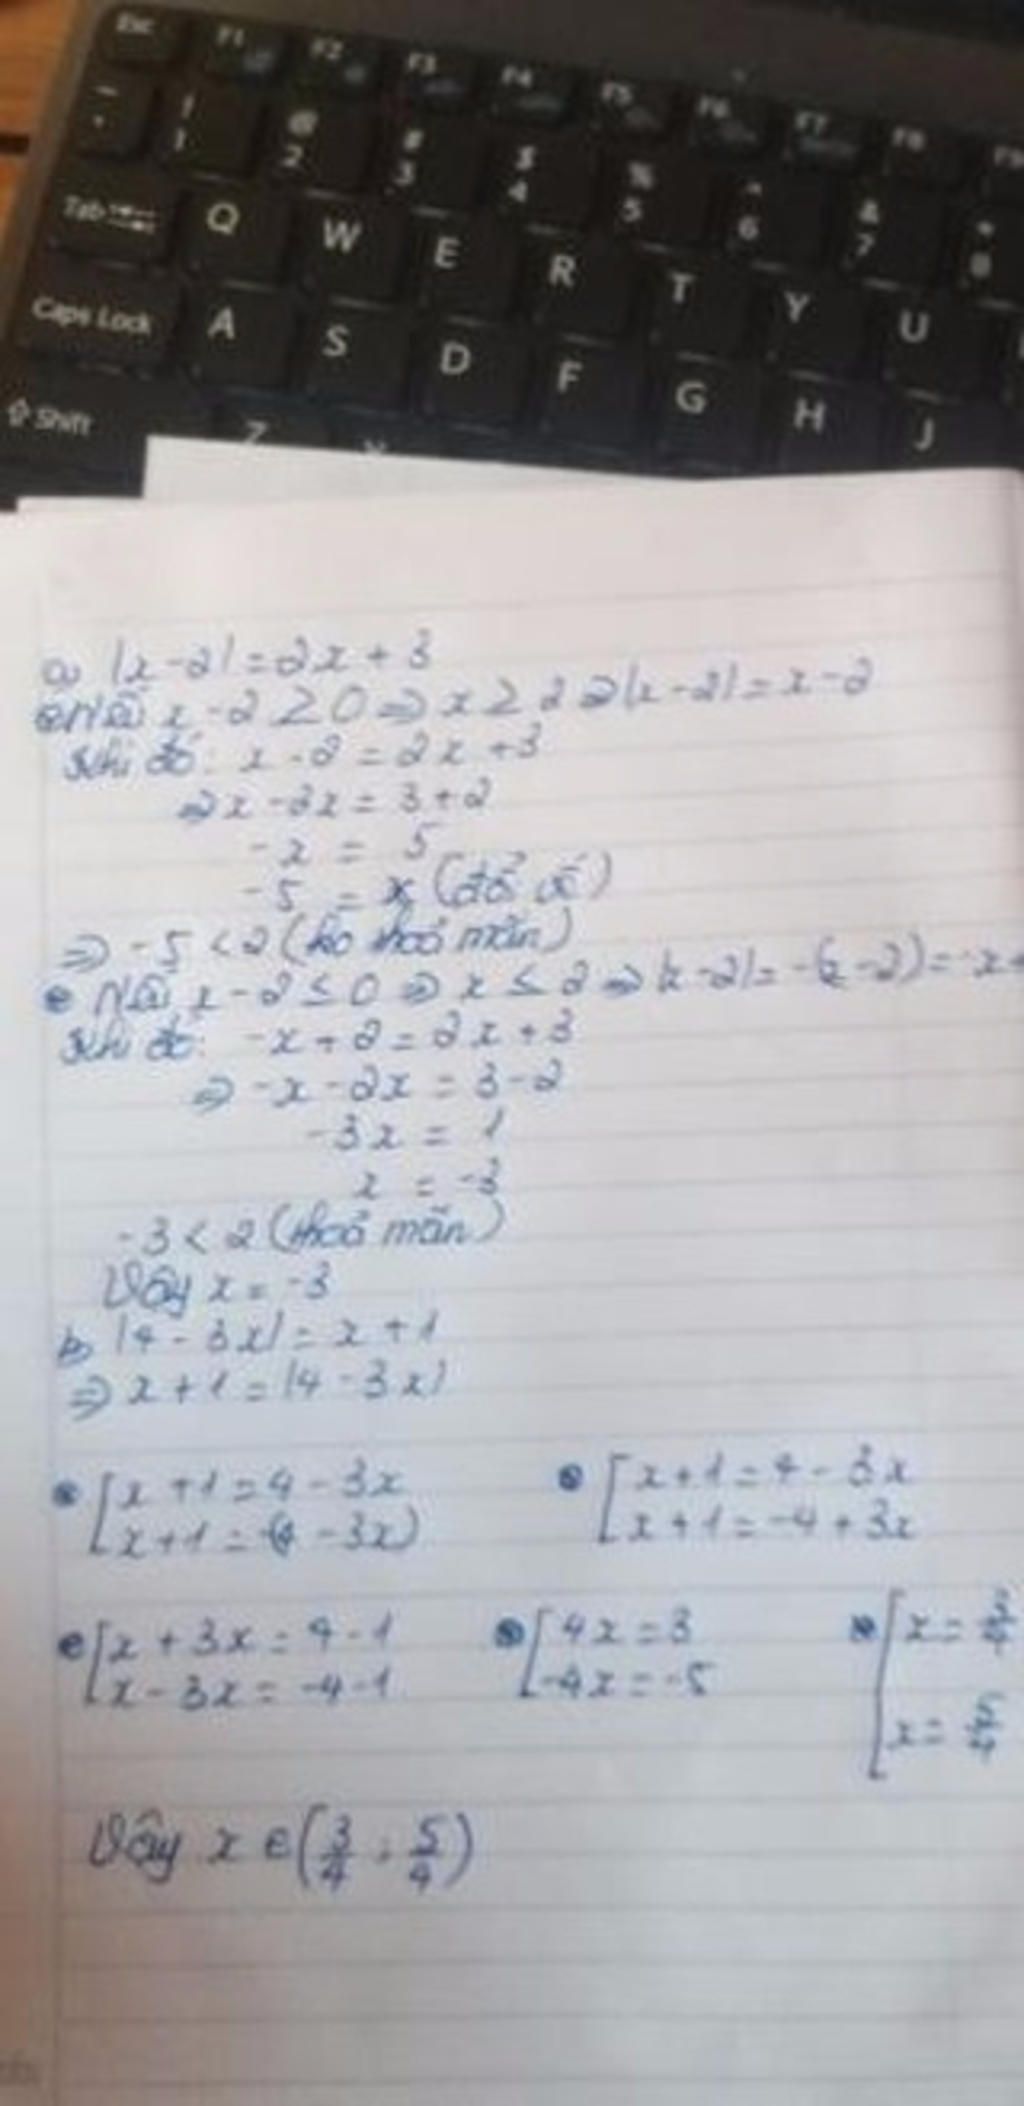 Esc F1 F2 F3 F4 F5 F6 F7 F8 F9
~ ! 1 @ 2 # 3 $ 4 % 5 ^ 6 & 7 * 8
Tab Q W E R T Y U
Caps Lock A S D F G H J
Shift Z X
a) |x-2|=2x+3
Nếu x-2≥0⇒x≥2⇒|x-2|=x-2
Khi đó: x-2=2x+3
⇒x-2x=3+2
-x=5
-5=x (đổi vế)
⇒-5<2 (ko thoả mãn)
Nếu x-2≤0⇒x≤2⇒|x-2|=-(x-2)=-x+
Khi đó: -x+2=2x+3
⇒-x-2x=3-2
-3x=1
x=-3
-3<2 (thoả mãn)
Vậy x=-3
b) |4-3x|=x+1
⇒x+1=|4-3x|
[x+1=4-3x [x+1=4-3x
x+1=-(4-3x) x+1=-4+3x
[x+3x=4-1 [4x=3 [x=3/4
x-3x=-4-1 -4x=-5 x=5/4
Vậy x∈(3/4;5/4)